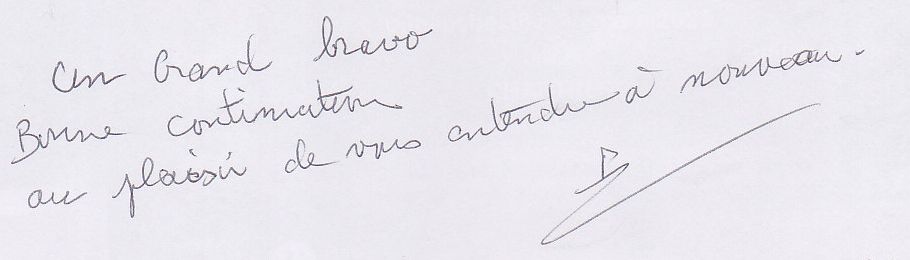 Un Grand bravo
Bonne continuation
au plaisir de vous entendre à nouveau.